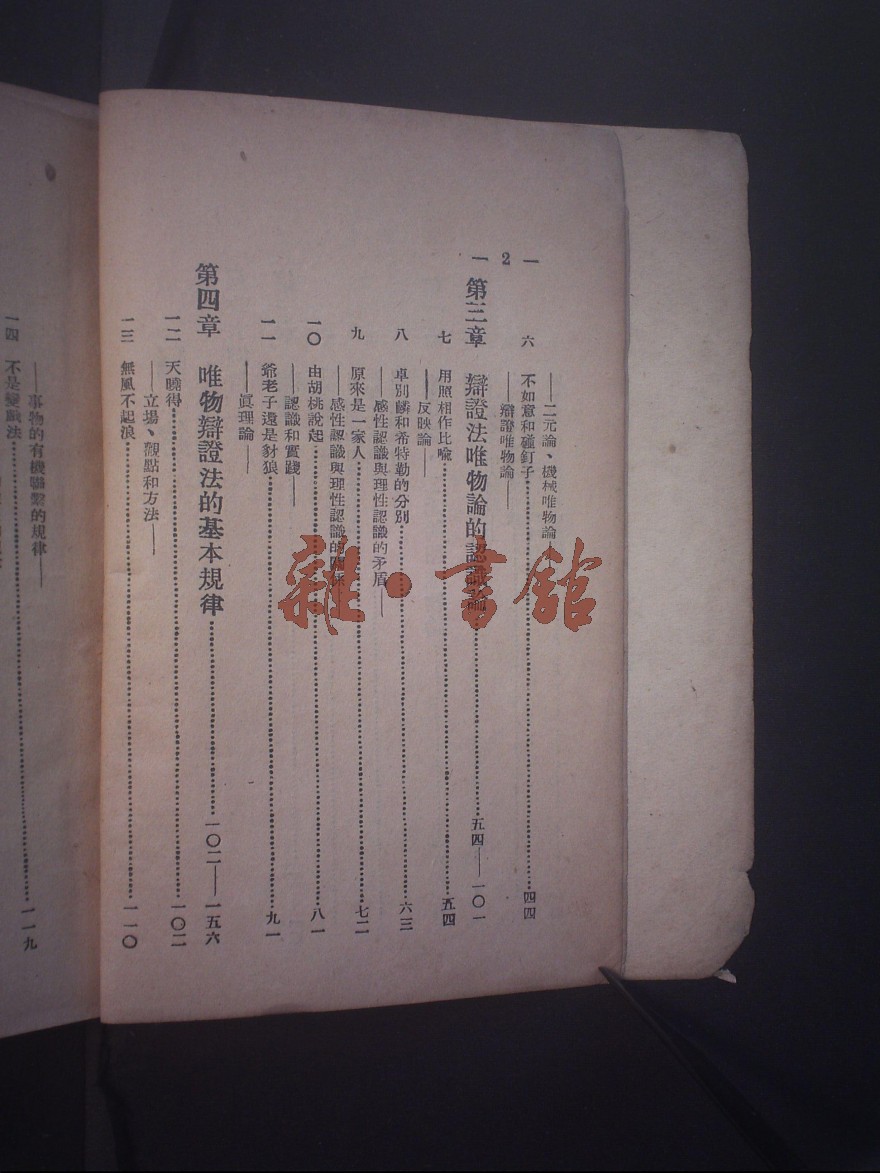 — 2 —
——二元論、機械唯物論——
六 不如意和碰釘子……四四
——辯證唯物論——
第三章 辯證法唯物論的認識論……五四——一〇一
七 用照相作比喩……五四
——反映論——
八 卓別麟和希特勒的分別……六三
——感性認識與理性認識的矛盾——
九 原來是一家人……七二
——感性認識與理性認識的關係——
一〇 由胡桃說起……八一
——認識和實踐——
一一 爺老子還是豺狼……九一
——眞理論——
第四章 唯物辯證法的基本規律……一〇二——一五六
一二 天曉得……一〇二
——立場、觀點和方法——
一三 無風不起浪……一一〇
——事物的有機聯繫的規律——
一四 不是變戲法……一一九
雜·書館